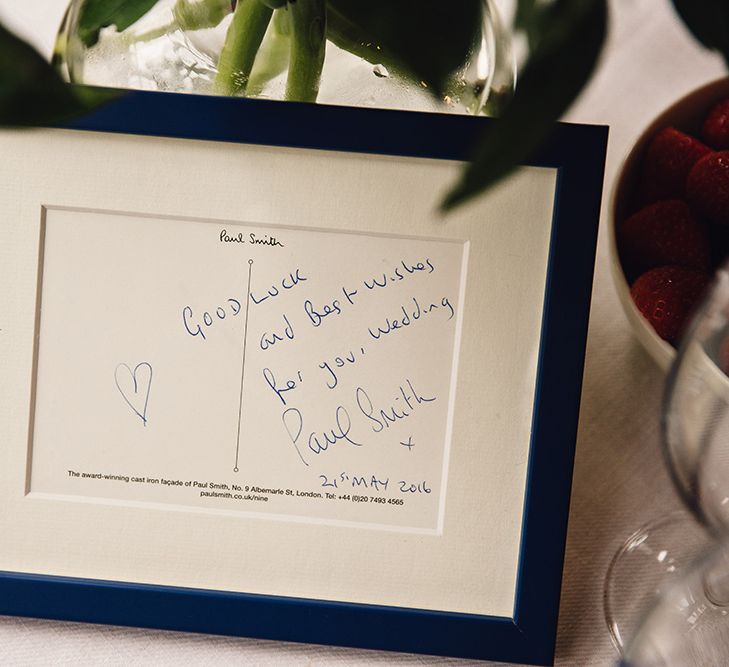 Paul Smith
GOOD LUCK
and Best Wishes
for your Wedding
Paul Smith
x
21ST MAY 2016
The award-winning cast iron façade of Paul Smith, No. 9 Albemarle St, London. Tel: +44 (0)20 7493 4565
paulsmith.co.uk/nine